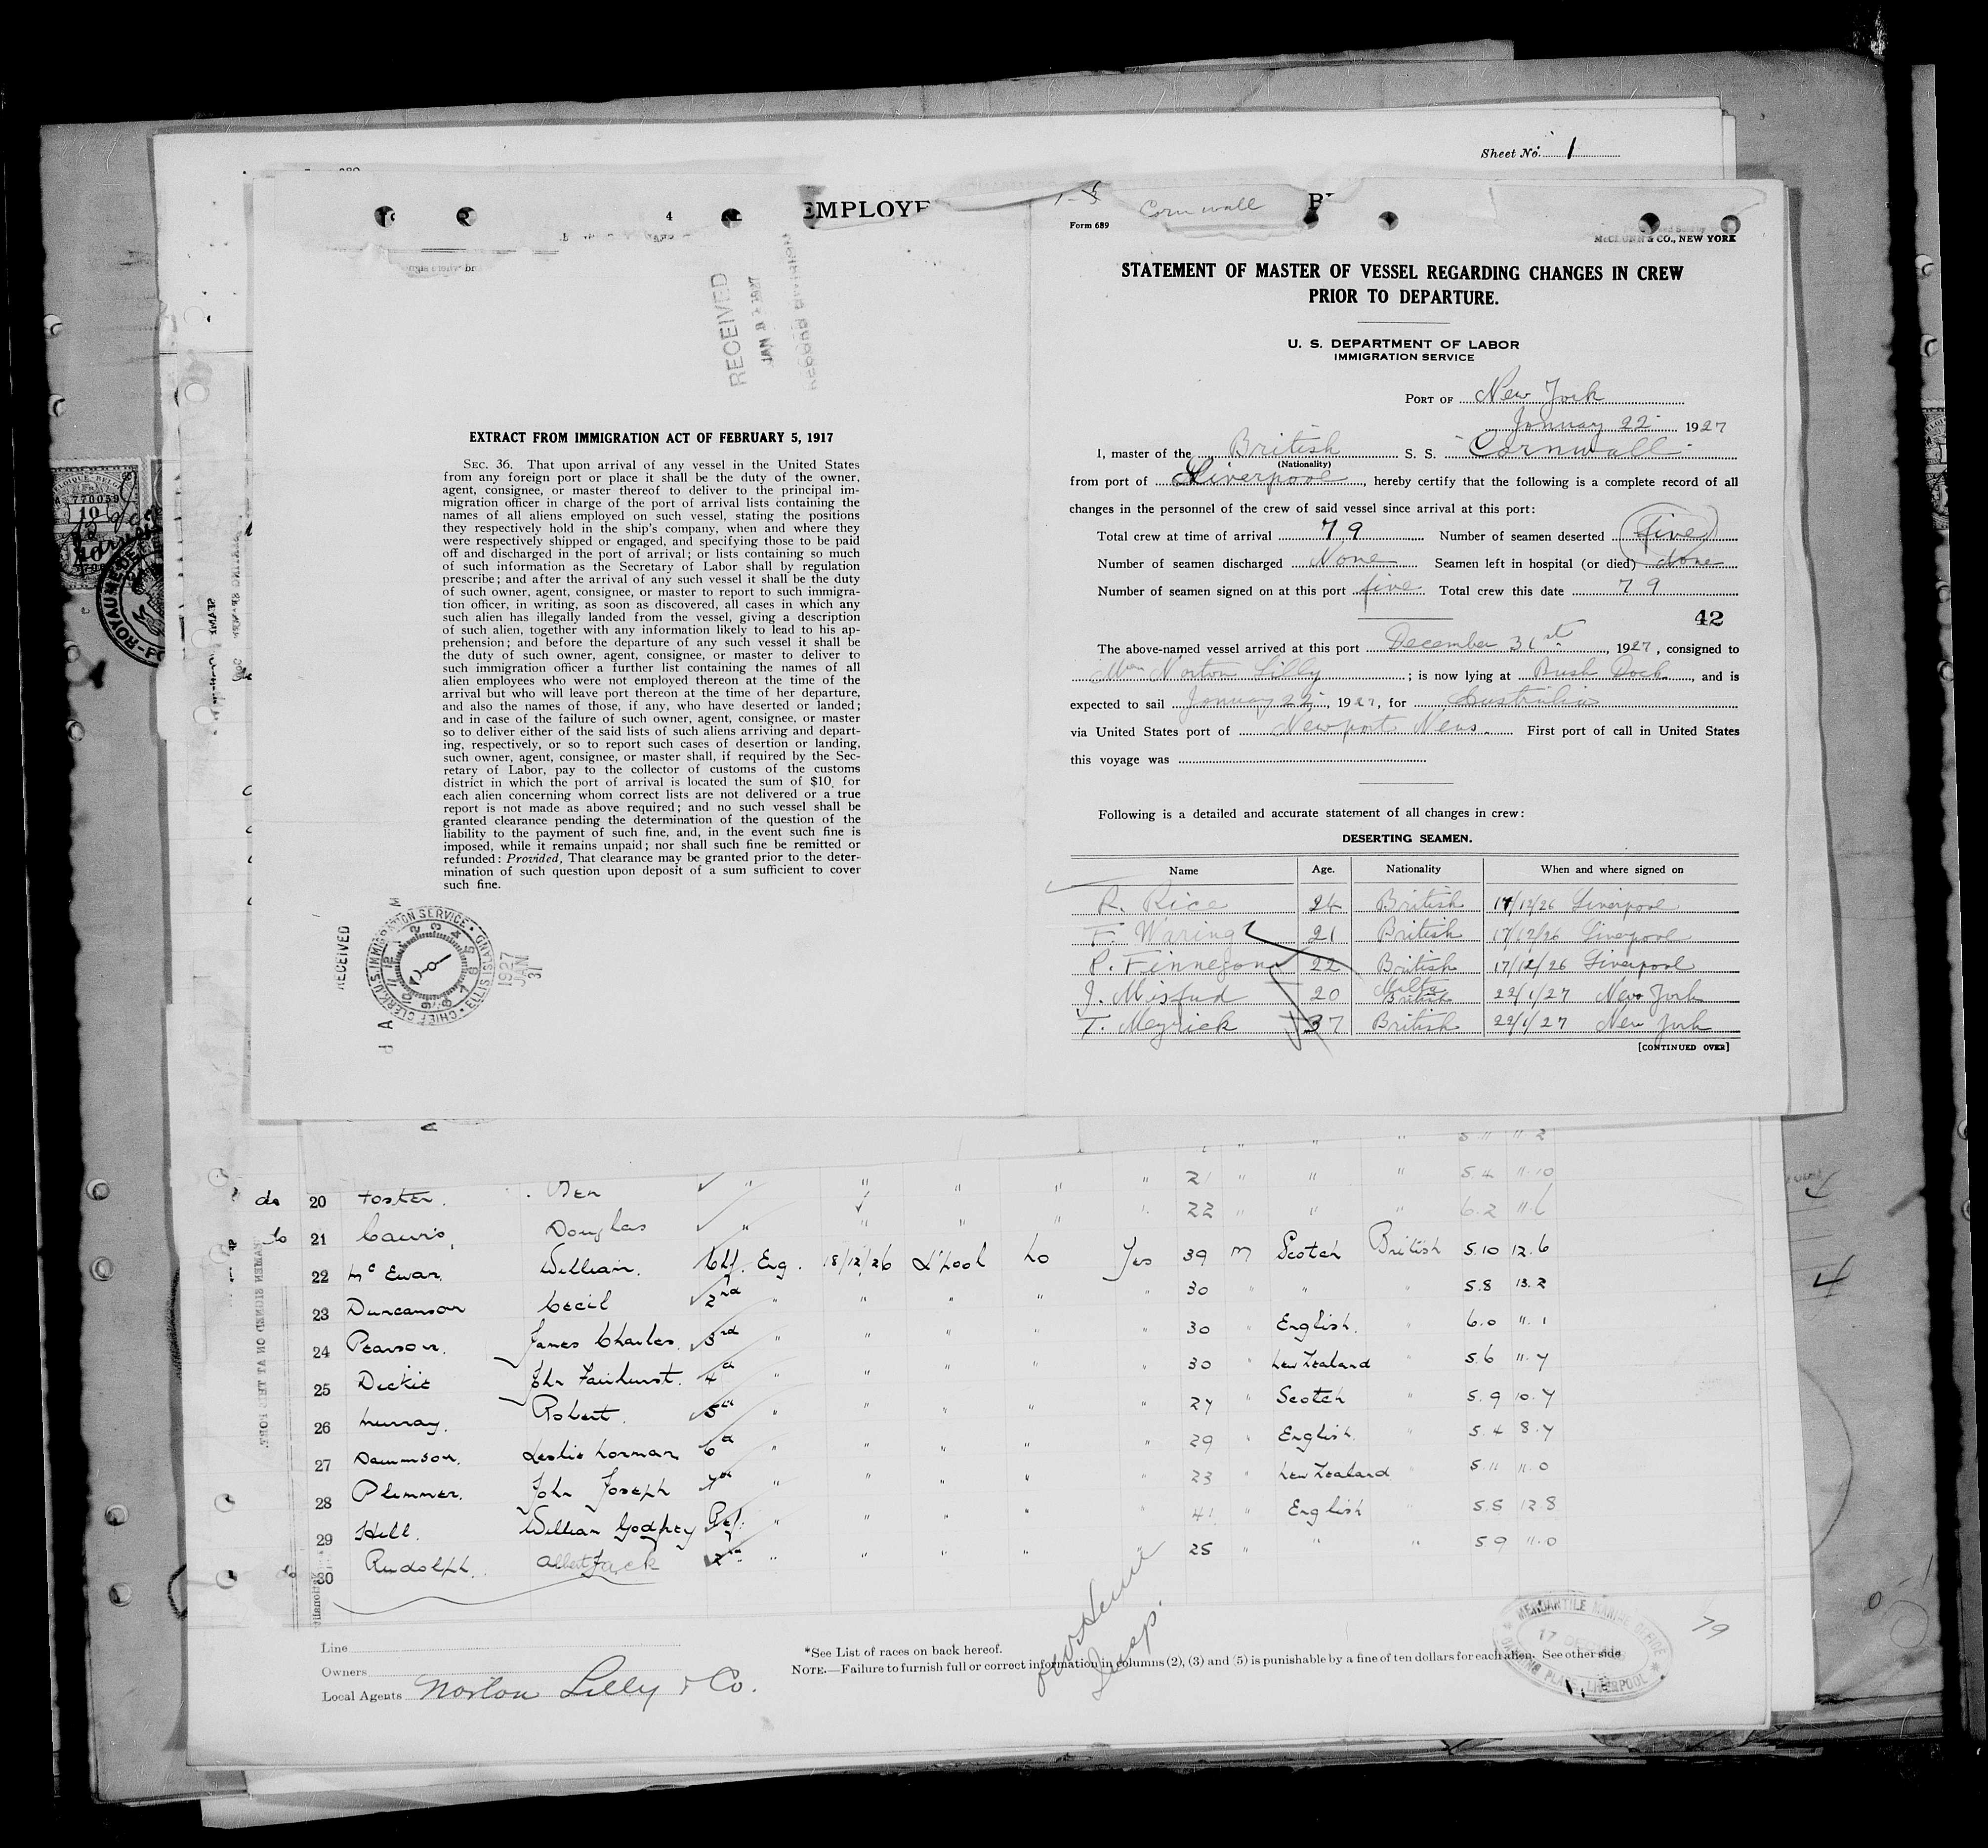 Sheet No. 1
EMPLOYE
4
RECEIVED
JAN 1927
RECORD DIVISION
EXTRACT FROM IMMIGRATION ACT OF FEBRUARY 5, 1917
SEC. 36. That upon arrival of any vessel in the United States
from any foreign port or place it shall be the duty of the owner,
agent, consignee, or master thereof to deliver to the principal im-
migration officer in charge of the port of arrival lists containing the
names of all aliens employed on such vessel, stating the positions
they respectively hold in the ship's company, when and where they
were respectively shipped or engaged, and specifying those to be paid
off and discharged in the port of arrival; or lists containing so much
of such information as the Secretary of Labor shall by regulation
prescribe; and after the arrival of any such vessel it shall be the duty
of such owner, agent, consignee, or master to report to such immigra-
tion officer, in writing, as soon as discovered, all cases in which any
such alien has illegally landed from the vessel, giving a description
of such alien, together with any information likely to lead to his ap-
prehension; and before the departure of any such vessel it shall be
the duty of such owner, agent, consignee, or master to deliver to
such immigration officer a further list containing the names of all
alien employees who were not employed thereon at the time of the
arrival but who will leave port thereon at the time of her departure,
and also the names of those, if any, who have deserted or landed;
and in case of the failure of such owner, agent, consignee, or master
so to deliver either of the said lists of such aliens arriving and depart-
ing, respectively, or so to report such cases of desertion or landing,
such owner, agent, consignee, or master shall, if required by the Sec-
retary of Labor, pay to the collector of customs of the customs
district in which the port of arrival is located the sum of $10 for
each alien concerning whom correct lists are not delivered or a true
report is not made as above required; and no such vessel shall be
granted clearance pending the determination of the question of the
liability to the payment of such fine, and, in the event such fine is
imposed, while it remains unpaid; nor shall such fine be remitted or
refunded: Provided, That clearance may be granted prior to the deter-
mination of such question upon deposit of a sum sufficient to cover
such fine.
RECEIVED
CHIEF CLERK, U.S. IMMIGRATION SERVICE • ELLIS ISLAND •
1927 JAN 31
Cornwall
Form 689
& CO., NEW YORK
STATEMENT OF MASTER OF VESSEL REGARDING CHANGES IN CREW
PRIOR TO DEPARTURE.
U. S. DEPARTMENT OF LABOR
IMMIGRATION SERVICE
PORT OF New York
January 22 1927
I, master of the British S. S. Cornwall
(Nationality)
from port of Liverpool, hereby certify that the following is a complete record of all
changes in the personnel of the crew of said vessel since arrival at this port:
Total crew at time of arrival 79 Number of seamen deserted five
Number of seamen discharged None Seamen left in hospital (or died) None
Number of seamen signed on at this port five Total crew this date 79
42
The above-named vessel arrived at this port December 31st, 1927, consigned to
Norton Lilly; is now lying at Bush Dock, and is
expected to sail January 22, 1927, for Australia
via United States port of Newport News. First port of call in United States
this voyage was
Following is a detailed and accurate statement of all changes in crew:
DESERTING SEAMEN.
Name Age. Nationality When and where signed on
R. Rice 24 British 17/12/26 Liverpool
F. Waring 21 British 17/12/26 Liverpool
P. Finnegan 22 British 17/12/26 Liverpool
J. Misfud 20 Malta British 22/1/27 New York
T. Meyrick 37 British 22/1/27 New York
[CONTINUED OVER]
do 20 Foster. " " " " " 21 " " " 5.4 11.10
do 21 Douglas " " " " " 22 " " " 6.2 11.6
22 McEwan. William. Chf. Eng. 18/12/26 L'pool No Yes 39 m Scotch British 5.10 12.6
23 Duncanson Cecil 2nd " " " " " 30 " " " 5.8 13.2
24 Pearson. James Charles. 3rd " " " " " 30 " English. " 6.0 11.1
25 Dickie John Fairhurst. 4th " " " " " 30 " New Zealand " 5.6 11.7
26 Murray. Robert. 5th " " " " " 27 " Scotch " 5.9 10.7
27 Leslie Norman 6th " " " " " 29 " English. " 5.4 8.7
28 Plimmer. John Joseph 7th " " " " " 23 " New Zealand " 5.11 11.0
29 Hill. William Godfrey Ref. " " " " " 41 " English " 5.5 12.8
30 Rudolph. Albert Jack 2nd " " " " " 25 " " " 5.9 11.0
Line
Owners
Local Agents Norton Lilly & Co.
*See List of races on back hereof.
NOTE.—Failure to furnish full or correct information in columns (2), (3) and (5) is punishable by a fine of ten dollars for each alien. See other side
MERCANTILE MARINE OFFICE
17 DEC
CANNING PLACE, LIVERPOOL
79